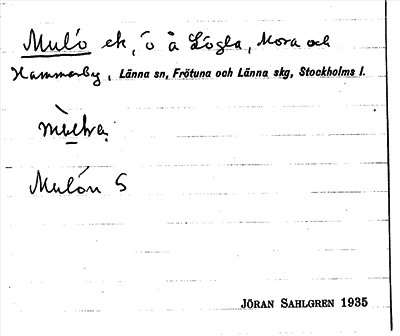 Mulö ek, ö å Lögla, Mora och
Hammarby, Länna sn, Frötuna och Länna skg, Stockholms l.
Mulön S
JÖRAN SAHLGREN 1935